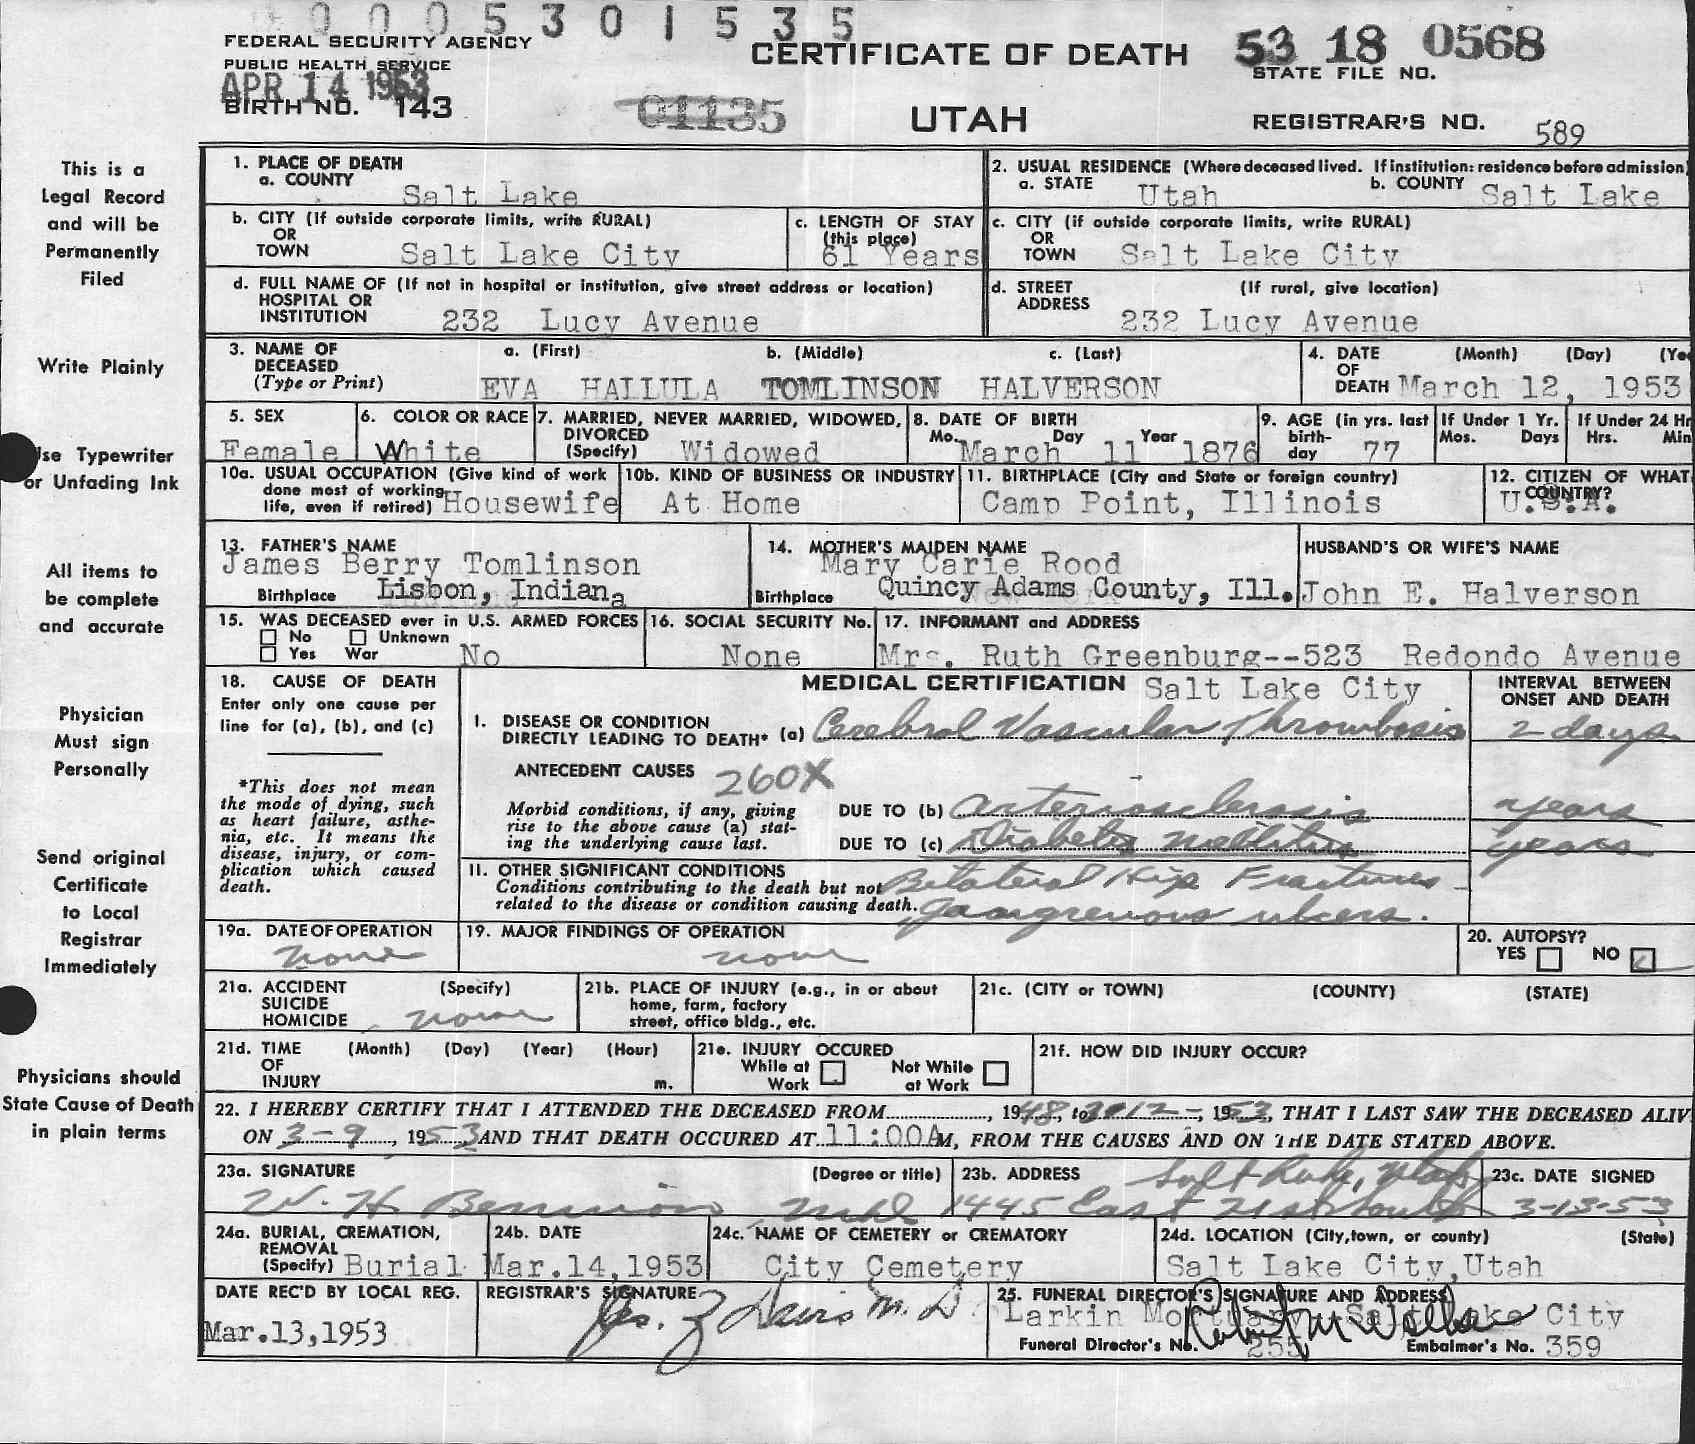 0005301535
FEDERAL SECURITY AGENCY
PUBLIC HEALTH SERVICE
APR 14 1953
BIRTH NO. 143
01135
CERTIFICATE OF DEATH
UTAH
53 18 0568
STATE FILE NO.
REGISTRAR'S NO. 589
This is a
Legal Record
and will be
Permanently
Filed
Write Plainly
Use Typewriter
or Unfading Ink
All items to
be complete
and accurate
Physician
Must sign
Personally
Send original
Certificate
to Local
Registrar
Immediately
Physicians should
State Cause of Death
in plain terms
1. PLACE OF DEATH
a. COUNTY Salt Lake
2. USUAL RESIDENCE (Where deceased lived. If institution: residence before admission)
a. STATE Utah b. COUNTY Salt Lake
b. CITY (If outside corporate limits, write RURAL)
OR
TOWN Salt Lake City
c. LENGTH OF STAY
(this place)
61 Years
c. CITY (if outside corporate limits, write RURAL)
OR
TOWN Salt Lake City
d. FULL NAME OF (If not in hospital or institution, give street address or location)
HOSPITAL OR
INSTITUTION 232 Lucy Avenue
d. STREET (If rural, give location)
ADDRESS
232 Lucy Avenue
3. NAME OF DECEASED
(Type or Print)
a. (First) b. (Middle) c. (Last)
EVA HALLULA TOMLINSON HALVERSON
4. DATE OF DEATH (Month) (Day)
March 12, 1953
5. SEX
Female
6. COLOR OR RACE
White
7. MARRIED, NEVER MARRIED, WIDOWED,
DIVORCED
(Specify) Widowed
8. DATE OF BIRTH
Mo. Day Year
March 11 1876
9. AGE (in yrs. last
birth-
day 77
If Under 1 Yr.
Mos. Days
If Under 24 Hr
Hrs. Min
10a. USUAL OCCUPATION (Give kind of work
done most of working
life, even if retired) Housewife
10b. KIND OF BUSINESS OR INDUSTRY
At Home
11. BIRTHPLACE (City and State or foreign country)
Camp Point, Illinois
12. CITIZEN OF WHAT
COUNTRY?
U.S.A.
13. FATHER'S NAME
James Berry Tomlinson
Birthplace Lisbon, Indiana
14. MOTHER'S MAIDEN NAME
Mary Carie Rood
Birthplace Quincy Adams County, Ill.
HUSBAND'S OR WIFE'S NAME
John E. Halverson
15. WAS DECEASED ever in U.S. ARMED FORCES
No Unknown
Yes War No
16. SOCIAL SECURITY No.
None
17. INFORMANT and ADDRESS
Mrs. Ruth Greenburg--523 Redondo Avenue
18. CAUSE OF DEATH
Enter only one cause per
line for (a), (b), and (c)
*This does not mean
the mode of dying, such
as heart failure, asthe-
nia, etc. It means the
disease, injury, or com-
plication which caused
death.
MEDICAL CERTIFICATION Salt Lake City
INTERVAL BETWEEN
ONSET AND DEATH
I. DISEASE OR CONDITION
DIRECTLY LEADING TO DEATH* (a) Cerebral Vascular Thrombosis 2 days
ANTECEDENT CAUSES 260X
Morbid conditions, if any, giving
rise to the above cause (a) stat-
ing the underlying cause last.
DUE TO (b) arteriosclerosis years
DUE TO (c) Diabetes mellitus years
II. OTHER SIGNIFICANT CONDITIONS
Conditions contributing to the death but not
related to the disease or condition causing death.
Bilateral Hip Fractures -
gangrenous ulcers.
19a. DATE OF OPERATION
none
19. MAJOR FINDINGS OF OPERATION
none
20. AUTOPSY?
YES NO
21a. ACCIDENT (Specify)
SUICIDE
HOMICIDE none
21b. PLACE OF INJURY (e.g., in or about
home, farm, factory
street, office bldg., etc.
21c. (CITY or TOWN) (COUNTY) (STATE)
21d. TIME (Month) (Day) (Year) (Hour)
OF
INJURY m.
21e. INJURY OCCURED
While at Work Not While at Work
21f. HOW DID INJURY OCCUR?
22. I HEREBY CERTIFY THAT I ATTENDED THE DECEASED FROM , 1948, to 3-12-, 1953, THAT I LAST SAW THE DECEASED ALIV
ON 3-9, 1953 AND THAT DEATH OCCURED AT 11:00AM, FROM THE CAUSES AND ON THE DATE STATED ABOVE.
23a. SIGNATURE (Degree or title)
W. H. Bennion MD
23b. ADDRESS Salt Lake, Utah
1445 East 21st South
23c. DATE SIGNED
3-13-53
24a. BURIAL, CREMATION,
REMOVAL
(Specify) Burial
24b. DATE
Mar.14,1953
24c. NAME OF CEMETERY or CREMATORY
City Cemetery
24d. LOCATION (City,town, or county) (State)
Salt Lake City,Utah
DATE REC'D BY LOCAL REG.
Mar.13,1953
REGISTRAR'S SIGNATURE
Davis M. D
25. FUNERAL DIRECTOR'S SIGNATURE AND ADDRESS
Larkin Mortuary Salt Lake City
Funeral Director's No. 255 Embalmer's No. 359